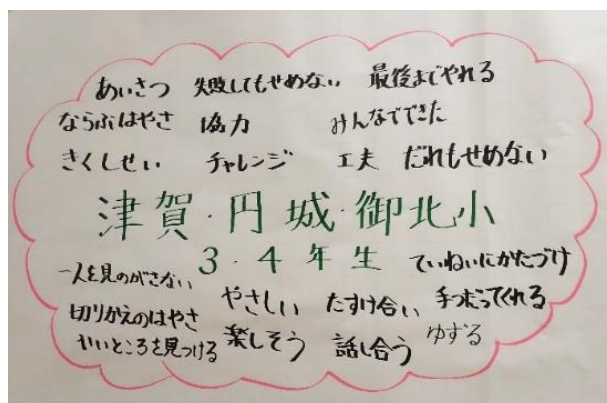 あいさつ 失敗してもせめない 最後までやれる
ならぶはやさ 協力 みんなでできた
きくしせい チャレンジ 工夫 だれもせめない
津賀・円城・御北小
3・4年生 ていねいにかたづけ
一人を見のがさない やさしい たすけ合い 手つだってくれる
切りかえのはやさ
いいところを見つける 楽しそう 話し合う ゆずる